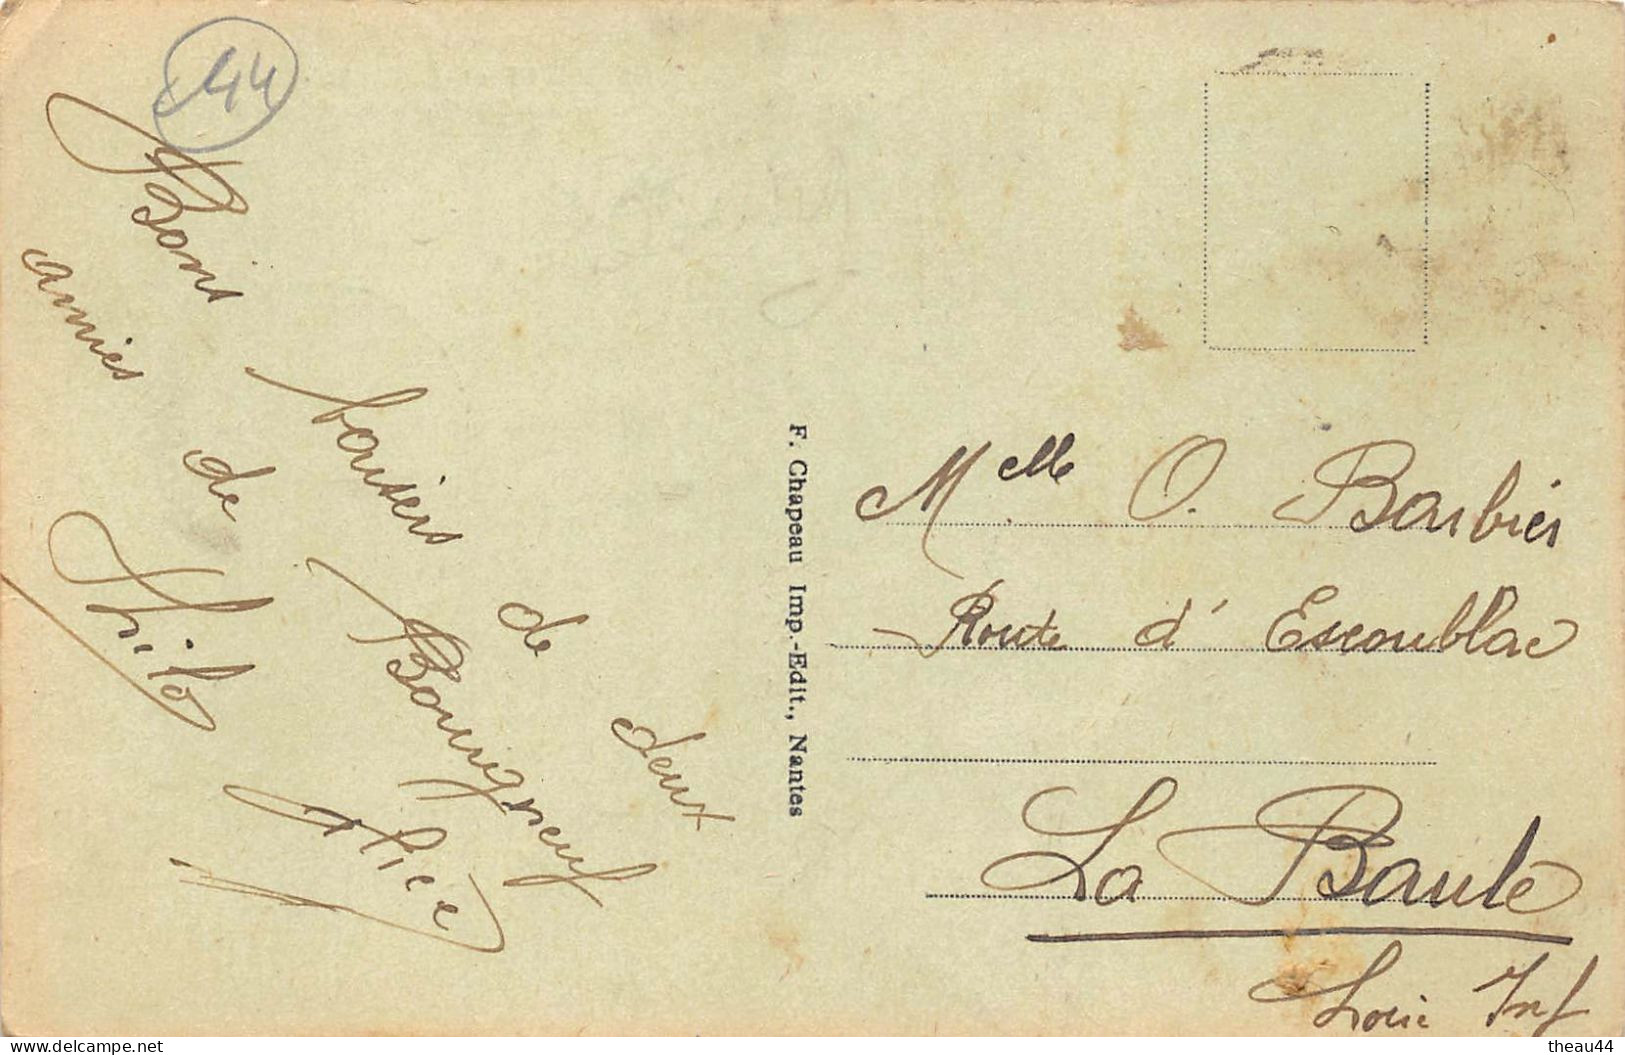 44
Bons baisers de deux
amies de Bourgneuf
F. Chapeau Imp.-Edit., Nantes
Melle O. Barbier
Route d'Escoublac
La Baule
Loire Inf
theau44